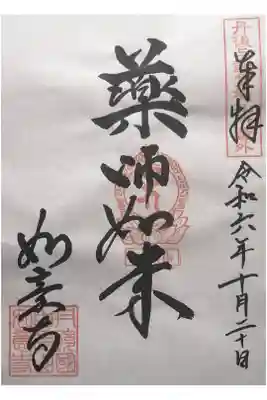 奉拝
令和六年十月二十日
薬師如来
如意寺